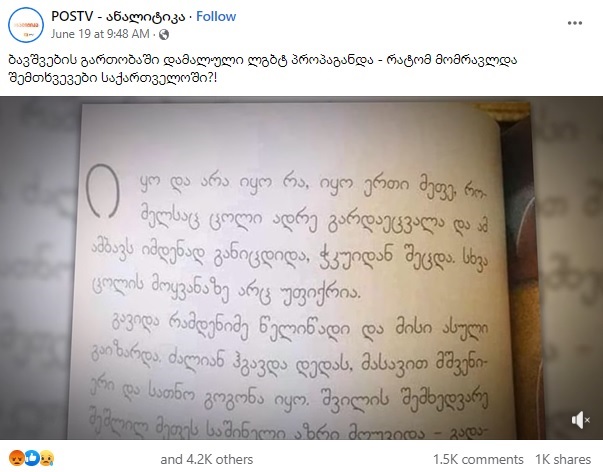 POSTV - ანალიტიკა · Follow
June 19 at 9:48 AM ·
ბავშვების გართობაში დამალული ლგბტ პროპაგანდა - რატომ მომრავლდა
შემთხვევები საქართველოში?!
იყო და არა იყო რა, იყო ერთი მეფე, რო-
მელსაც ცოლი ადრე გარდაეცვალა და ამ
ამბავს იმდენად განიცდიდა, ჭკუიდან შეცდა. სხვა
ცოლის მოყვანაზე არც უფიქრია.
გავიდა რამდენიმე წელიწადი და მისი ასული
გაიზარდა. ძალიან ჰგავდა დედას, მასავით მშვენი-
ერი და სათნო გოგონა იყო. შვილის შემხედვარე
შეშლილ მეფეს საშინელი აზრი მოუვიდა - გადა-
and 4.2K others
1.5K comments 1K shares